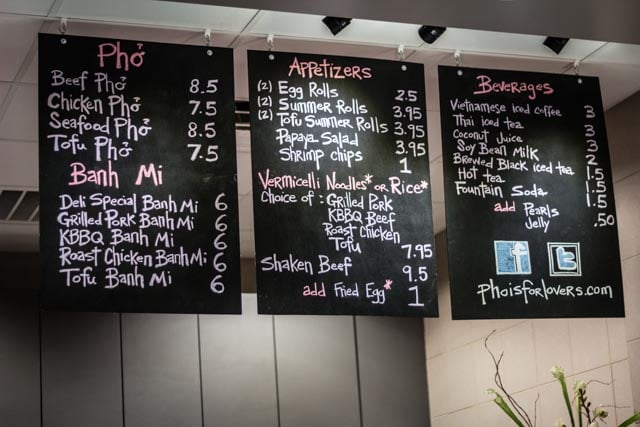 Phở
Beef Phở 8.5
Chicken Phở 7.5
Seafood Phở 8.5
Tofu Phở 7.5
Banh Mi
Deli Special Banh Mi 6
Grilled Pork Banh Mi 6
KBBQ Banh Mi 6
Roast Chicken Banh Mi 6
Tofu Banh Mi 6
Appetizers
(2) Egg Rolls 2.5
(2) Summer Rolls 3.95
(2) Tofu Summer Rolls 3.95
Papaya Salad 3.95
Shrimp chips 1
Vermicelli Noodles* or Rice*
Choice of: Grilled Pork
KBBQ Beef
Roast Chicken
Tofu 7.95
Shaken Beef 9.5
add Fried Egg* 1
Beverages
Vietnamese iced coffee 3
Thai iced tea 3
Coconut Juice 3
Soy Bean Milk 2
Brewed Black iced tea 1.5
Hot tea 1.5
Fountain Soda 1.5
add Pearls .50
Jelly
f t
phoisforlovers.com